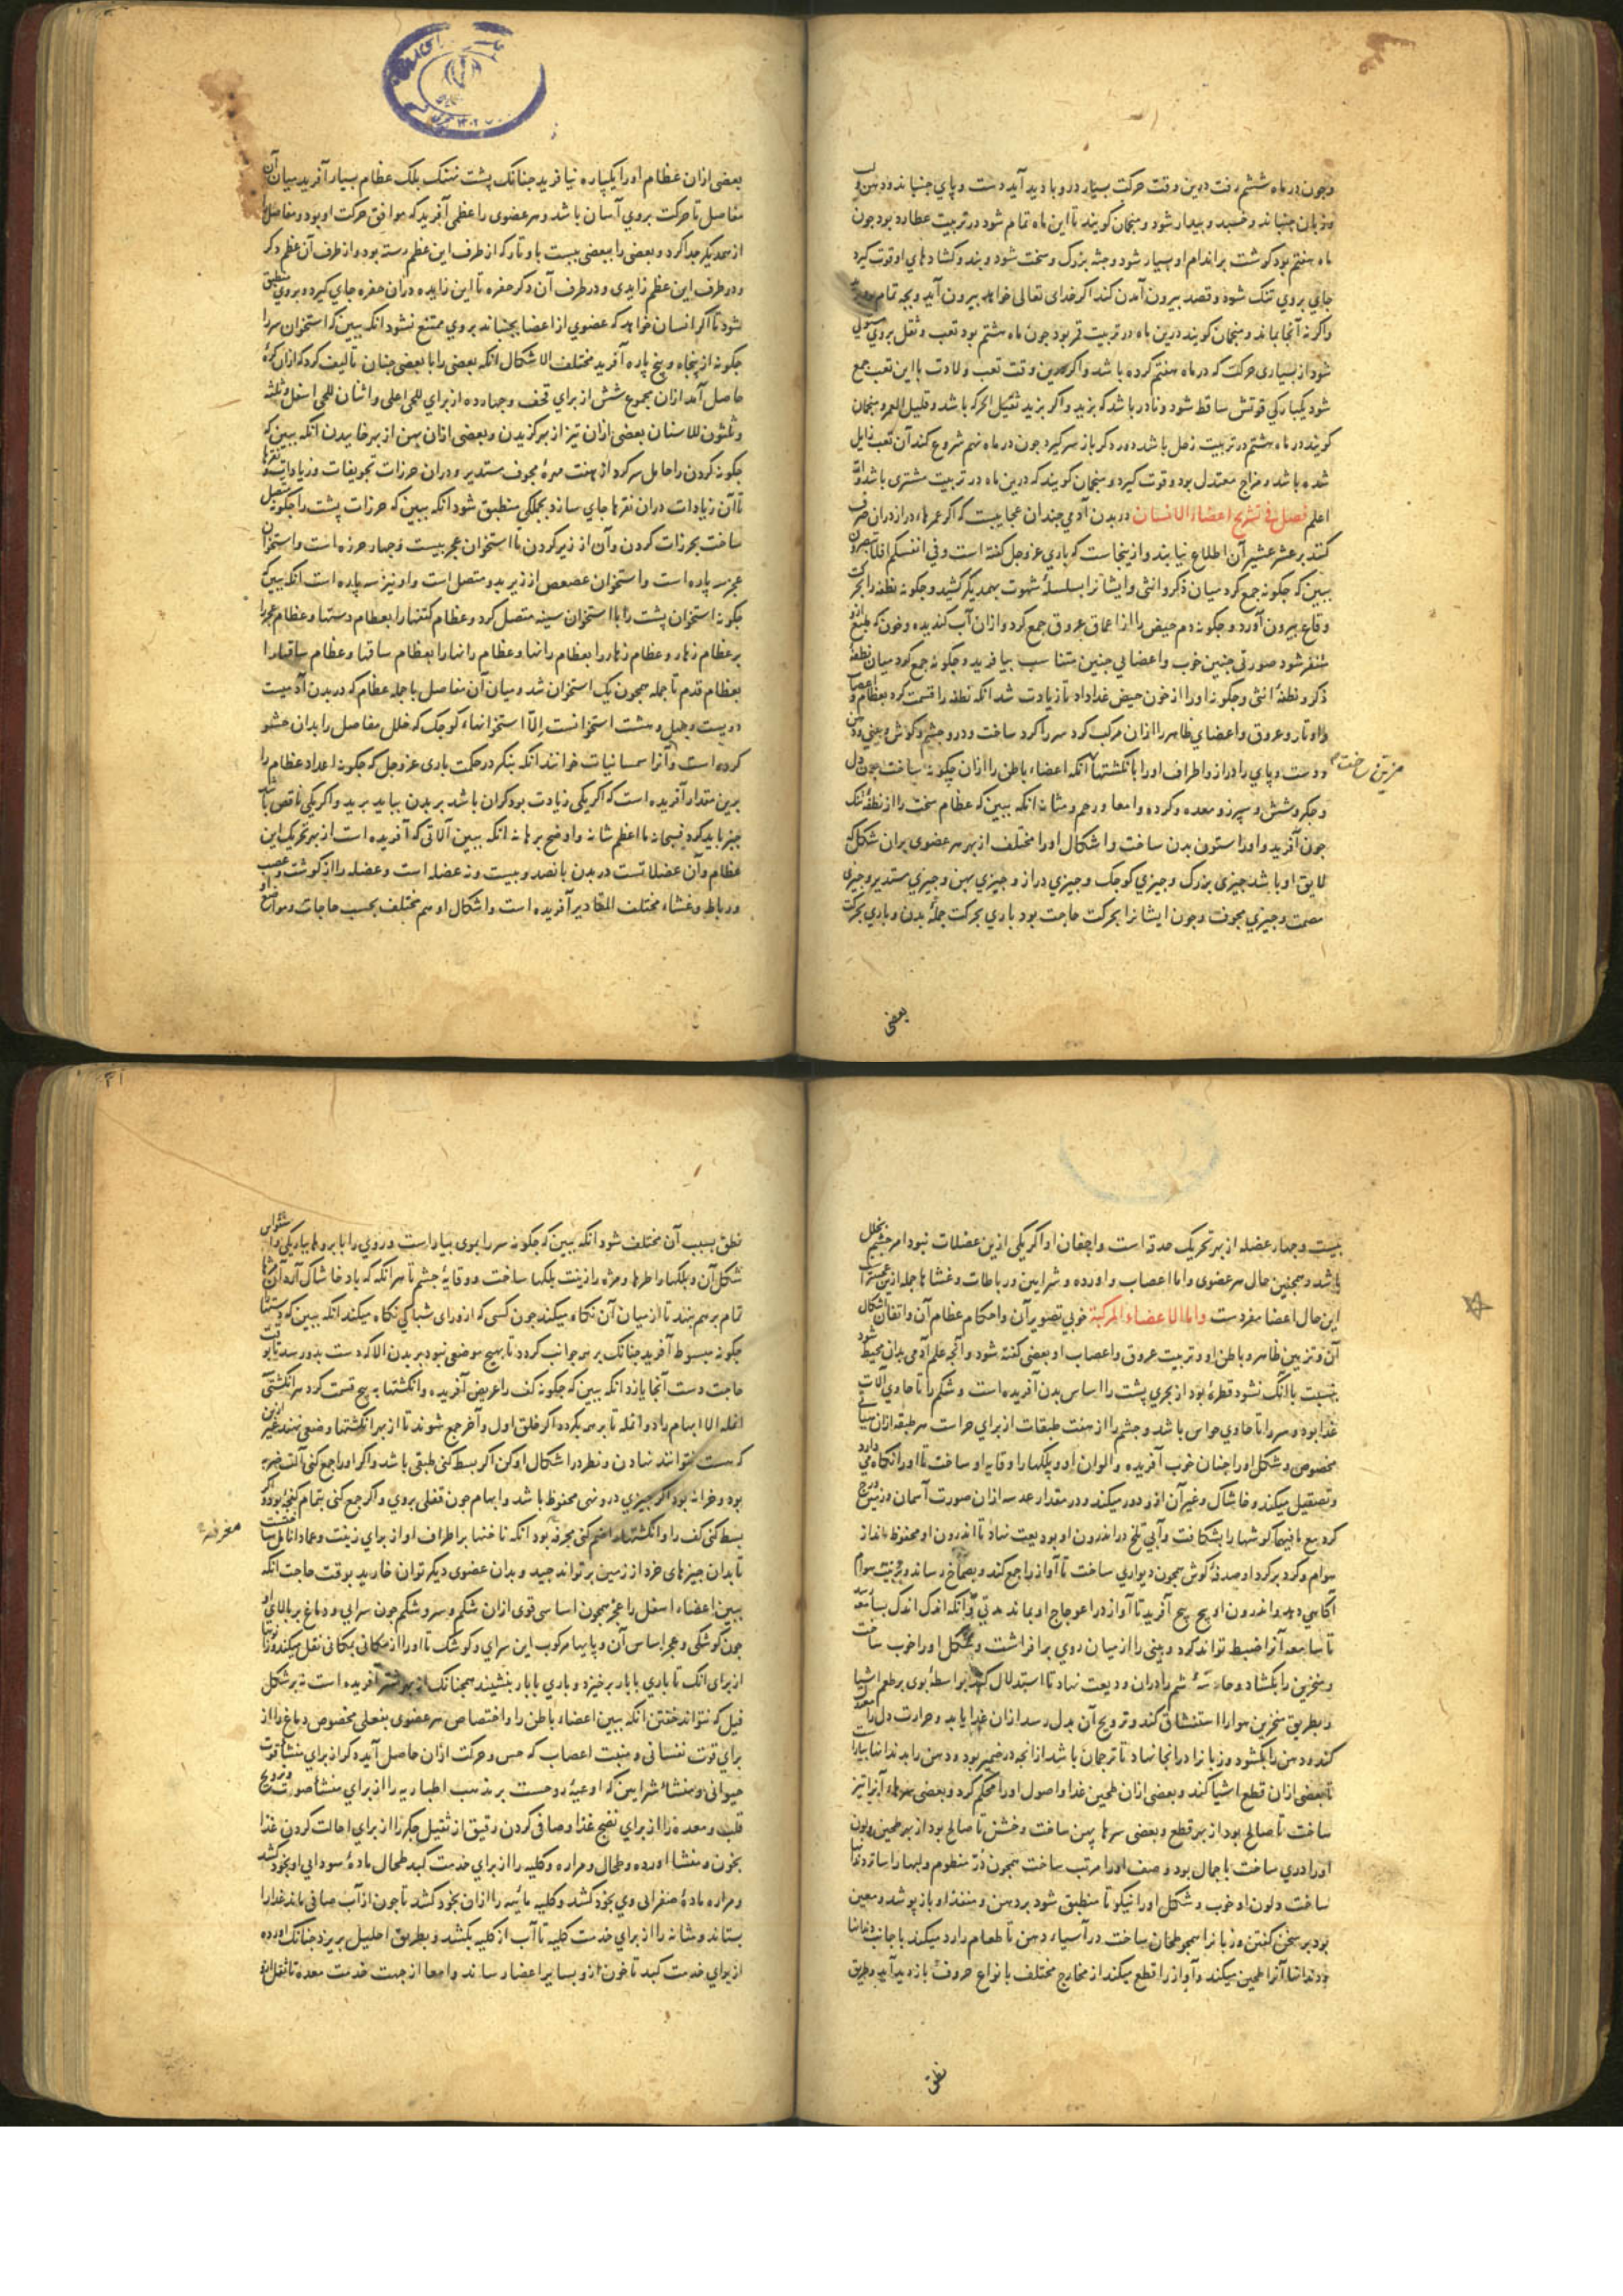 وچون در ماه ششم رفت درین وقت حرکت بسیار درو بادید آید دست و پای جنباند و دهن و لب
و زبان جنباند و خسبد و بیدار شود و منجمان کویند تا این ماه تمام شود در تربیت عطارد بود جون
ماه هفتم بود کوشت بر اندام او بسیار شود و جثه بزرک و سخت شود و بند و کشادهای او قوت کیرد
جای بروی تنک شود و قصد بیرون آمدن کند اکر خدای تعالی خواهد بیرون آید و بجه تمام
واکر نه آنجا بماند و منجمان کویند درین ماه در تربیت قمر بود جون ماه هشتم بود تعب و ثقل بروی
شود از بسیاری حرکت که در ماه هفتم کرده باشد واکر درین وقت تعب ولادت با این تعب جمع
شود یکبارکی قوتش ساقط شود و نادر باشد که بزید واکر بزید ثقیل الحرکه باشد و قلیل العمر و منجمان
کویند در ماه هشتم در تربیت زحل باشد دور دکر باز سر کیرد جون در ماه نهم شروع کند آن تعب زایل
شده باشد و مزاج معتدل بود و قوت کیرد و منجمان کویند که درین ماه در تربیت مشتری باشد والله
اعلم فصل فی تشریح اعضاء الانسان در بدن آدمی جندان عجایبست که اکر عمرهاء دراز دران صرف
کنند بر عشر عشیر آن اطلاع نیابند و ازینجاست که باری عز وجل کفته است وفی انفسکم افلا تبصرون
ببین که جکونه جمع کرد میان ذکر و انثی و ایشانرا بسلسلهٔ شهوت بهمدیکر کشید و جکونه نطفه را بحرکت
وقاع بیرون آورد و جکونه دم حیض را از اعماق عروق جمع کرد و ازان آب کندیده و خون که طبع ازو
متنفر شود صورتی جنین خوب و اعضایی جنین متناسب بیافرید و جکونه جمع کرد میان نطفهٔ
ذکر و نطفهٔ انثی و جکونه او را از خون حیض غذا داد تا زیادت شد انکه نطفه را قسمت کرد بعظام و اعصاب
و اوتار و عروق و اعضای ظاهر را ازان مرکب کرد سر را کرد ساخت و درو جشم و کوش و بینی و دهن
و دست و پای را دراز و اطراف او را بانکشتها مزین ساخت آنکه اعضاء باطن را ازان جکونه ساخت جون دل
و جکر و شش و سپرز و معده و کرده و امعا و رحم و مثانه انکه ببین که عظام سخت را از نطفهٔ تنک
جون آفرید و او را ستون بدن ساخت و اشکال او را مختلف از بهر هر عضوی بران شکل که
لایق او باشد جیزی بزرک و جیزی کوجک و جیزی دراز و جیزی پهن و جیزی مستدیر و جیزی
مصمت و جیزی مجوف و جون ایشانرا بحرکت حاجت بود باری بحرکت جملهٔ بدن و باری بحرکت
بعضی
بعضی ازان عظام او را یکپاره نیافرید جنانک پشت نهنک بلک عظام بسیار آفرید میان آن
مفاصل تا حرکت بروی آسان باشد و هر عضوی را عظمی آفرید که موافق حرکت او بود و مفاصل را
از همدیکر جدا کرد و بعضی را ببعضی ببست باوتار که از طرف این عظم رسته بود و از طرف آن عظم دکر
و در طرف این عظم زایدی و در طرف آن دکر حفره تا این زایده دران حفره جای کیرد و بروی منطبق
شود تا اکر انسان خواهد که عضوی از اعضا بجنباند بروی ممتنع نشود انکه ببین که استخوان سر را
جکونه از پنجاه و پنج پاره آفرید مختلف الاشکال انکه بعضی را با بعضی جنان تالیف کرد که ازان کرهٔ
حاصل آمد ازان مجموع شش از برای قحف و جهارده از برای للحی اعلی و اثنان للحی اسفل و ثلثه
و ثلثون للاسنان بعضی ازان تیز از بهر کزیدن و بعضی ازان پهن از بهر خاییدن انکه ببین که
جکونه کردن را حامل سر کرد از هفت مهرهٔ مجوف مستدیر و دران خرزات تجویفات و زیادات و نقرها
تا آن زیادات دران نقرها جای سازد بجملکی منطبق شود انکه ببین که خرزات پشت را جکونه متصل
ساخت بخرزات کردن و آن از زیر کردن تا استخوان عجز بیست و جهار خرزه است و استخوان
عجز سه پاره است و استخوان عصعص از زیر بدو متصل است و او نیز سه پاره است انکه ببین که
جکونه استخوان پشت را با استخوان سینه متصل کرد و عظام کتفها را بعظام دستها و عظام عجز را
بر عظام زهار و عظام زهار را بعظام رانها و عظام رانها را بعظام ساقها و عظام ساقها را
بعظام قدم تا جمله همجون یک استخوان شد و میان آن مفاصل با جمله عظام که در بدن آدمیست
دویست و جهل و هشت استخوانست الّا استخوانهاء کوجک که خلل مفاصل را بدان حشو
کرده است و آنرا سمسانیات خوانند انکه بنکر در حکمت باری عز وجل که جکونه اعداد عظام را
برین مقدار آفریده است که اکر یکی زیادت بود کران باشد بر بدن بباید برید و اکر یکی ناقص باشد
جبر باید کرد فسبحانه ما اعظم شانه و اوضح برهانه انکه ببین آلاتی که آفریده است از بهر تحریک این
عظام و آن عضلاتست در بدن پانصد و بیست و نه عضله است و عضله را از کوشت و عصب
و رباط و غشاء مختلف المقادیر آفریده است و اشکال او هم مختلف بحسب حاجات و مواضع او
بیست و جهار عضله از بهر تحریک حدقه است و اجفان او اکر یکی ازین عضلات نبود امر جشم بخلل
باشد و همجنین حال هر عضوی و اما اعصاب و اورده و شرایین و رباطات و غشاها جمله ازین
این حال اعضاء مفردست واما الاعضاء المرکبة خوبی تصویر آن و احکام عظام آن و اتفاق اشکال
آن و تزیین ظاهر و باطن او و تربیت عروق و اعصاب او بعضی کفته شود و آنجه علم آدمی بدان محیط شود
بنسبت با آنک نشود قطرهٔ بود از بحری پشت را اساس بدن آفریده است و شکم را تا حاوی آلات
غذا بود و سر را تا حاوی حواس باشد و جشم را از هفت طبقات از برای حراست هر طبقه ازان
مخصوص و شکل او را جنان خوب آفریده و الوان او و پلکها را وقایه او ساخت تا او را نکاه می دارد
و تصقیل میکند و خاشاک و غیر آن ازو دور میکند و در مقدار عدسه ازان صورت آسمان و زمین درج
کرد مع ما فیهما کوشها را بشکافت و آبی تلخ در اندرون او بودیعت نهاد تا اندرون او محفوظ ماند از
هوام و کرد بر کرد او صدفهٔ کوش همجون دیواری ساخت تا آواز را جمع کند و بصماخ رساند
آکاهی دهد و اندرون او پیچ پیچ آفرید تا آواز در اعوجاج او بماند مدتی و آنکه اندک اندک بسامعه رسد
تا سامعه آنرا ضبط تواند کرد و بینی را از میان روی بر افراشت و شکل او را خوب ساخت
و منخرین را بکشاد و حاسهٔ شم را دران ودیعت نهاد تا استدلال کند بواسطهٔ بوی بر طعم اشیا
و بطریق منخرین هوا را استنشاق کند و ترویح آن بدل رسد ازان غذا یابد و حرارت دل را معتدل
کند و دهن را بکشود و زبانرا در انجا نهاد تا ترجمان باشد از انجه در ضمیر بود و دهن را بدندانها بیاراست
تا بعضی ازان قطع اشیا کند و بعضی ازان طحین غذا و اصول او را محکم کرد و بعضی سرهاء آنرا تیز
ساخت تا صالح بود از بهر قطع و بعضی سرها پهن ساخت و خشن تا صالح بود از بهر طحین و لون
او را دری ساخت با جمال بود و صف او را مرتب ساخت همجون درّ منظوم و لبها را ساتر دندانها
ساخت و لون او خوب و شکل او را نیکو تا منطبق شود بر دهن و منفذ او باز پوشد و معین
بود بر سخن کفتن و زبانرا همجو طحان ساخت در آسیاء دهن تا طعام را رد میکند با جانب دندانها
و دندانها آنرا طحین میکند و آواز را قطع میکند از مخارج مختلف تا بانواع حروف بازدید آید و طریق
نطق
نطق بسبب آن مختلف شود انکه ببین که جکونه سر را بموی بیاراست و روی را بابروها بباریکی و تقواس
شکل آن و پلکها را طرها و مژه را زینت پلکها ساخت و وقایهٔ جشم تا هر انکه که باد خاشاک آرد آن مژها
تمام بر هم نهند تا از میان آن نکاه میکند جون کسی که از ورای شباکی نکاه میکند انکه ببین که دستها
جکونه مبسوط آفرید جنانک بر هر جوانب کردد تا هیچ موضعی نبود بر بدن الا که دست بدو رسد تا بوقت
حاجت دست آنجا یازد انکه ببین که جکونه کف را عریض آفریده و انکشتها به پنج قسمت کرد هر انکشتی
انمله الا ابهام را دو انمله تا بر همه بکردد اکر خلق اول و آخر جمع شوند تا از بهر انکشتها وضعی نهند غیر ازین
که هست نتوانند نهادن و نظر در اشکال او کن اکر بسط کنی طبقی باشد و اکر او را جمع کنی آلت ضرب
بود و خزانه بود اکر جیزی درو نهی محفوظ باشد و ابهام جون قفلی بروی و اکر جمع کنی بتمام
بسط کنی کف را و انکشتها را ضم کنی مجرفه بود انکه ناخنها بر اطراف او از برای زینت و عماد انامل ساخت
مغرفهٔ
تا بدان جیزهای خرد از زمین بر تواند جید و بدان عضوی دیکر توان خارید بوقت حاجت انکه
ببین اعضاء اسفل را عجز همجون اساسی قوی ازان شکم و سر و شکم جون سرایی و دماغ بر بالای او
جون کوشکی و عجز اساس آن و پایها مرکوب این سرای و کوشک تا او را از مکانی بمکانی نقل میکند
از برای انک تا باری با بار برخیزد و باری با بار بنشیند همجنانک از بهر شتر آفریده است نه بر شکل
فیل که نتواند خفتن انکه ببین اعضاء باطن را و اختصاص هر عضوی بفعلی مخصوص دماغ را از
برای قوت نفسانی و منبت اعصاب که حس و حرکت ازان حاصل آید و کر از برای منشأ قوت
حیوانی و منشاء شرایین که اوعیهٔ روحست بر مذهب اطبا ریه را از برای منشأ صوت و ترویح
قلب و معده را از برای نضج غذا و صافی کردن رقیق از ثقیل جکر را از برای احالت کردن غذا
بخون و منشا اورده و طحال و مراره و کلیه را از برای خدمت کبد طحال مادهٔ سودایی او بخود کشد
و مراره مادهٔ صفرایی وی بخود کشد و کلیه مائیه را ازان بخود کشد تا جون از آب صافی ماند غذا را
بستاند و مثانه را از برای خدمت کلیه تا آب از کلیه بکشد و بطریق احلیل بریزد جنانک اورده
از برای خدمت کبد تا خون ازو بسایر اعضا رساند و امعا از جهت خدمت معده تا ثفل ازو